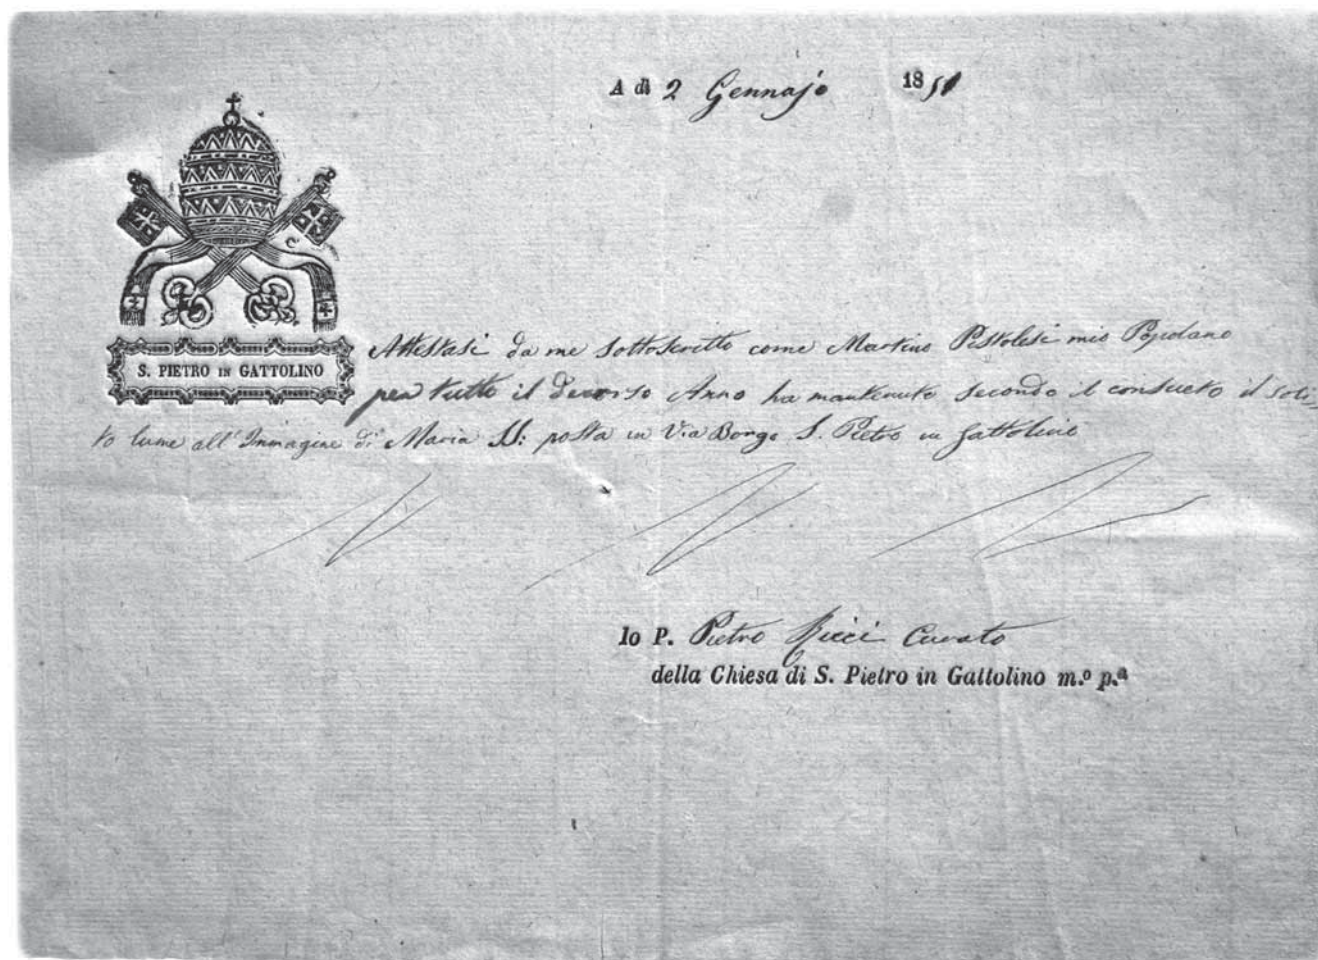 A dì 2 Gennajo 1851
S. PIETRO IN GATTOLINO
Attestasi da me sottoscritto come Martino Pistolesi mio Popolano
per tutto il decorso Anno ha mantenuto secondo il consueto il soli-
to lume all'Immagine di Maria SS: posta in Via Borgo S. Pietro in Gattolino
Io P. Pietro Ricci Curato
della Chiesa di S. Pietro in Gattolino m.º p.ª